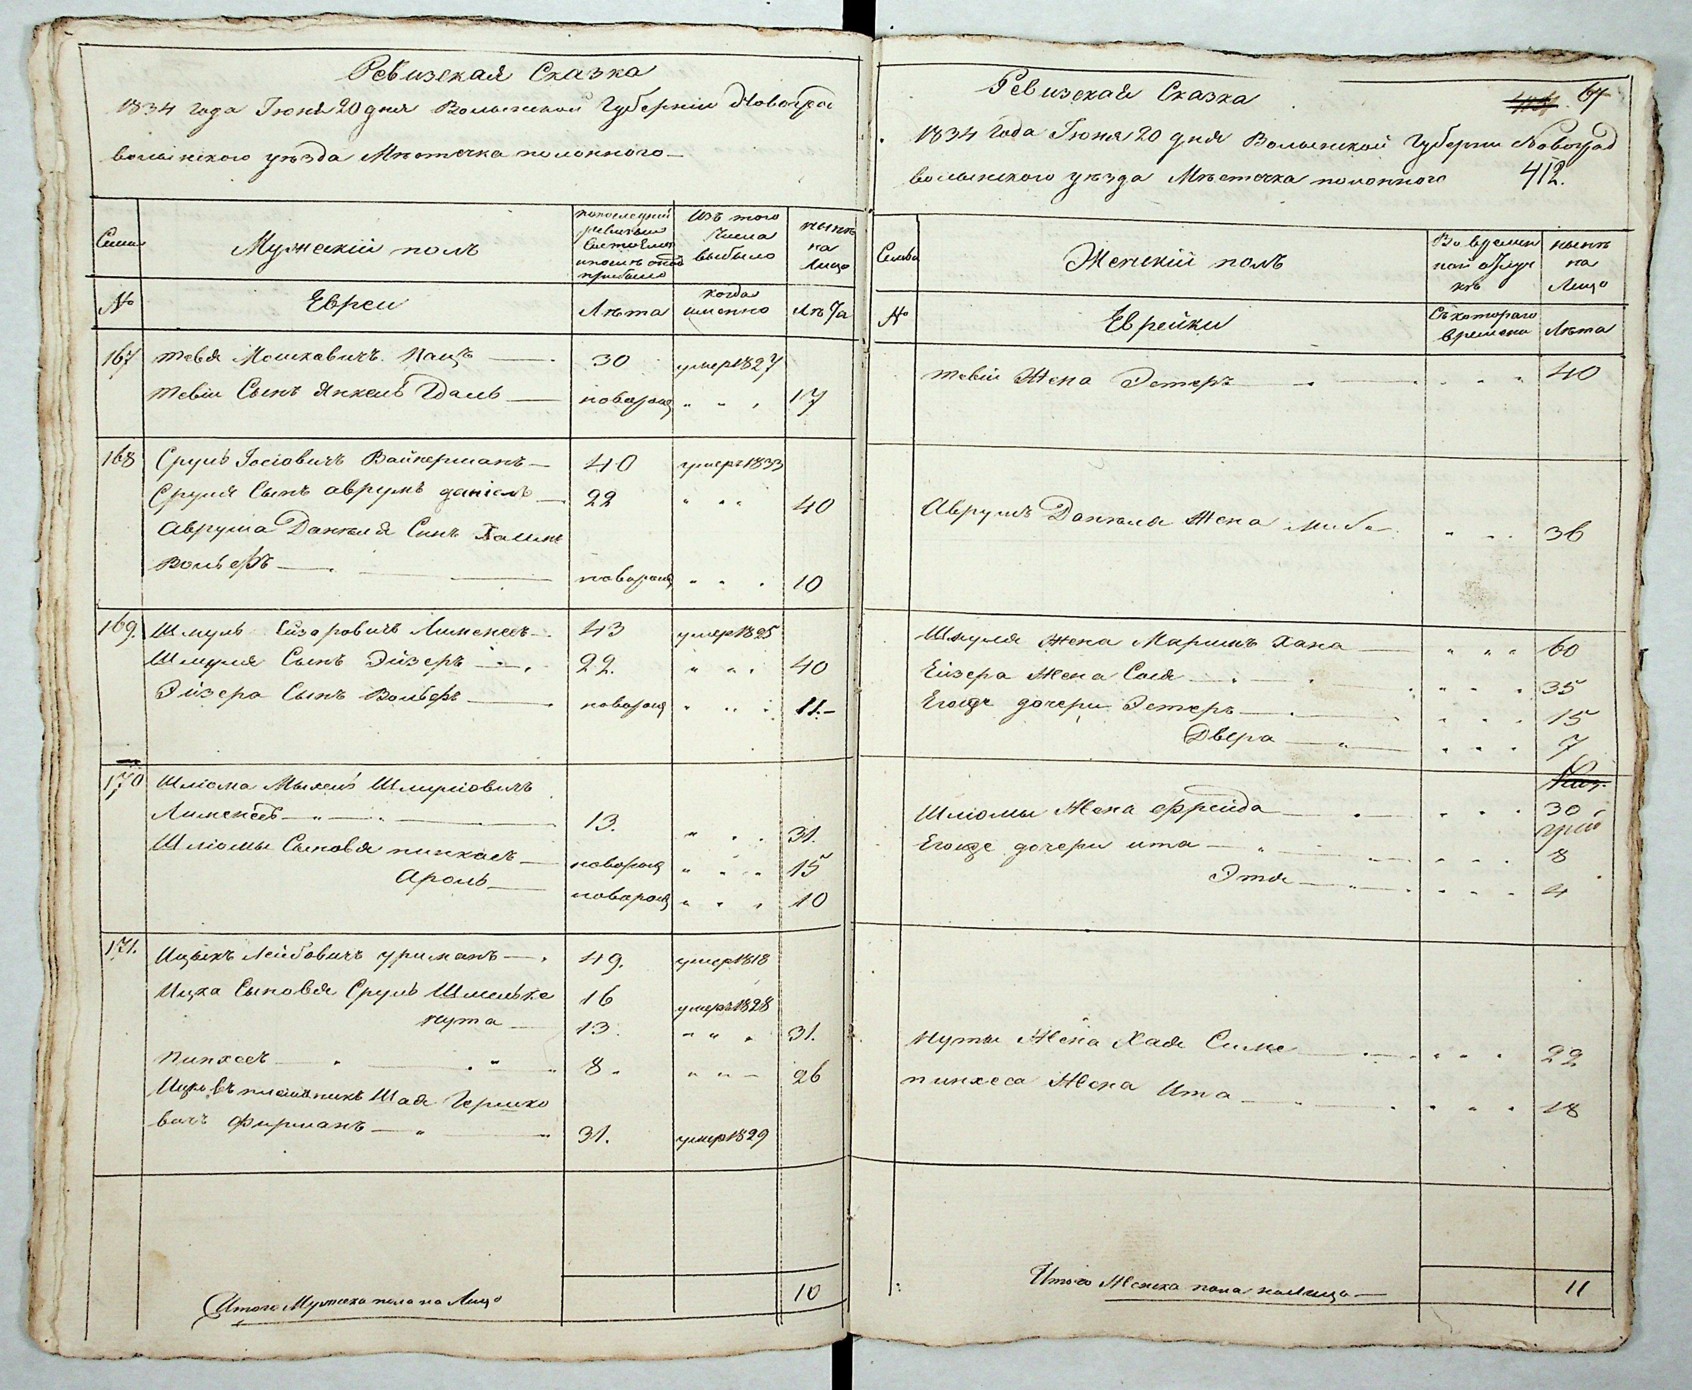 Ревизская Сказка
1834 года Июня 20 дня Волынской Губернии Новоград
волынского уезда Местечка полонного
Семьи
Мужеский полъ
по последней
ревизии
состояло
и после оной
прибыло
Изъ того
числа
выбыло
ныне
на
Лицо
№
Евреи
Лѣта
когда
именно
Лѣта
167 Тевя Мошковичъ Кацъ 30 умер 1827
Тевiи Сынъ Янкель Гдаль новорож 17
168 Сруль Iосiовичъ Вайнерманъ 40 умеръ 1833
Сруля Сынъ аврумъ данiель 22 40
Аврума Данiеля Сынъ Хаимъ
Вольфъ новорож 10
169. Шмуль Ейзеровичъ 43 умер 1825
Шмуля Сынъ Эйзеръ 22. 40
Эйзера Сынъ Вольфъ новорож 11.
170 Шлiома Мыхель Шмулiовичъ
13. 31.
Шлiомы Сыновья пинхасъ новорож 15
Аронъ новорож 10
171. Ицыкъ Лейбовичъ урманъ 49. умер 1818
Ицка Сыновья Сруль Шмелька 16 умеръ 1828
нута 13 31.
Пинхесъ 8 26
Ицковъ племяникъ Шая Гершко
вичъ Фурманъ 31. умер 1829
Итого Мужеска пола на Лицо 10
Ревизская Сказка 67
1834 года Июня 20 дня Волынской Губернии Новоград
волынского уезда Местечка полонного 412.
Семьи
Женский полъ
Во времен
ной отлуч
кѣ
ныне
на
Лицо
№
Еврейки
Съ котораго
времени
Лѣта
Тевiи Жена Эстеръ 40
Аврумъ Данiеля Жена Либа 36
Шмуля Жена Маримъ Хана 60
Ейзера Жена Сося 35
Егоже дочери Эстеръ 15
Двера 7
Шлiомы Жена Фрейда 30
Егоже дочери ита 8
Этя 4
Нуты Жена Хая Симе 22
пинхеса Жена Ита 18
Итого Женска пола налицо 11